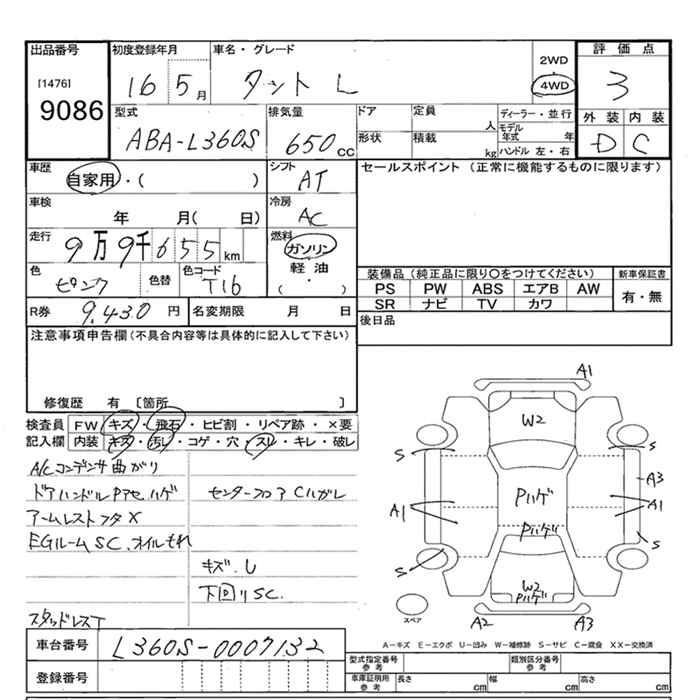 出品番号 初度登録年月 車名・グレード 2WD 評価点
[1476] 16 5月 タント L 4WD 3
9086
型式 排気量 ドア 定員 人 ディーラー・並行 外装 内装
ABA-L360S 650cc 形状 積載 kg モデル年式 年 D C
ハンドル 左・右
車歴 自家用・( ) シフト AT セールスポイント (正常に機能するものに限ります)
車検 年 月( 日) 冷房 AC
走行 9万9千655km 燃料 ガソリン
軽油
・
( )
色 ピンク 色替 色コード T16 装備品(純正品に限り○をつけてください) 新車保証書
PS PW ABS エアB AW 有・無
SR ナビ TV カワ
R券 9,430円 名変期限 月 日 後日品
注意事項申告欄(不具合内容等は具体的に記入して下さい)
修復歴 有 [箇所 ]
検査員 FW キズ・飛石・ヒビ割・リペア跡・×要
記入欄 内装 キズ・汚レ・コゲ・穴・スレ・キレ・破レ
A/Cコンデンサ曲がり
ドアハンドルPアセハゲ センターフロアCハガレ
アームレストフタX
EGルームSC.オイルもれ
キズ.U
下回りSC.
スタッドレスT
A1
W2
S S
A3
A1 Pハゲ A1
Pハゲ
S S
W2
Pハゲ
スペア A2 A3
A-キズ E-エクボ U-凹み W-補修跡 S-サビ C-腐食 XX-交換済
車台番号 L360S-0007132
登録番号
型式指定番号 参考 類別区分番号 参考
車庫証明用 参考 長さ cm 幅 cm 高さ cm